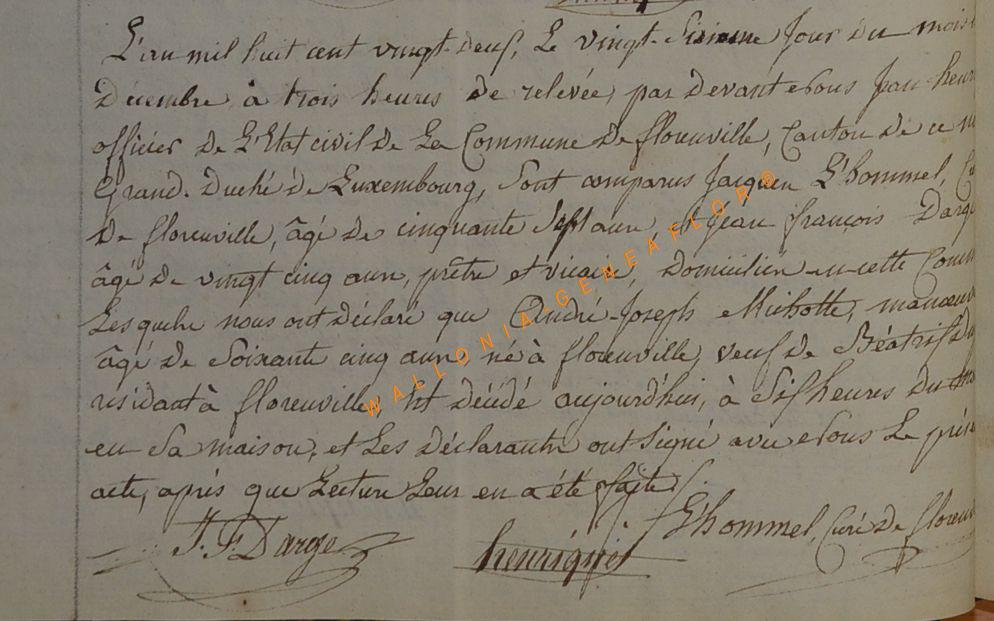 L'an mil huit cent vingt-deux, Le vingt-Sixieme Jour du mois
Décembre, à trois heures de relevée, par devant Nous Jean henri
officier de L'Etat civil de La Commune de florenville, Canton de ce
Grand-Duché de Luxembourg, Sont comparus Jacques L'hommel, Cu
de florenville, âgé de cinquante Sept ans, et Jean françois Darge
âgé de vingt cinq ans, prêtre et vicaire, domiciliés en cette Comm
Lesquels nous ont déclaré que André-Joseph Michotte, manoeuv
âgé de Soixante cinq ans, né à florenville, veuf de Béatrix
résidant à florenville, est décédé aujourd'hui, à Six heures du
en Sa maison, et Les déclarants ont Signé avec Nous Le prése
acte, après que Lecture Leur en a été faite.
J. F. Darge henriquet L'hommel, Curé de floren
WALLONIA GENEAFLOR ®